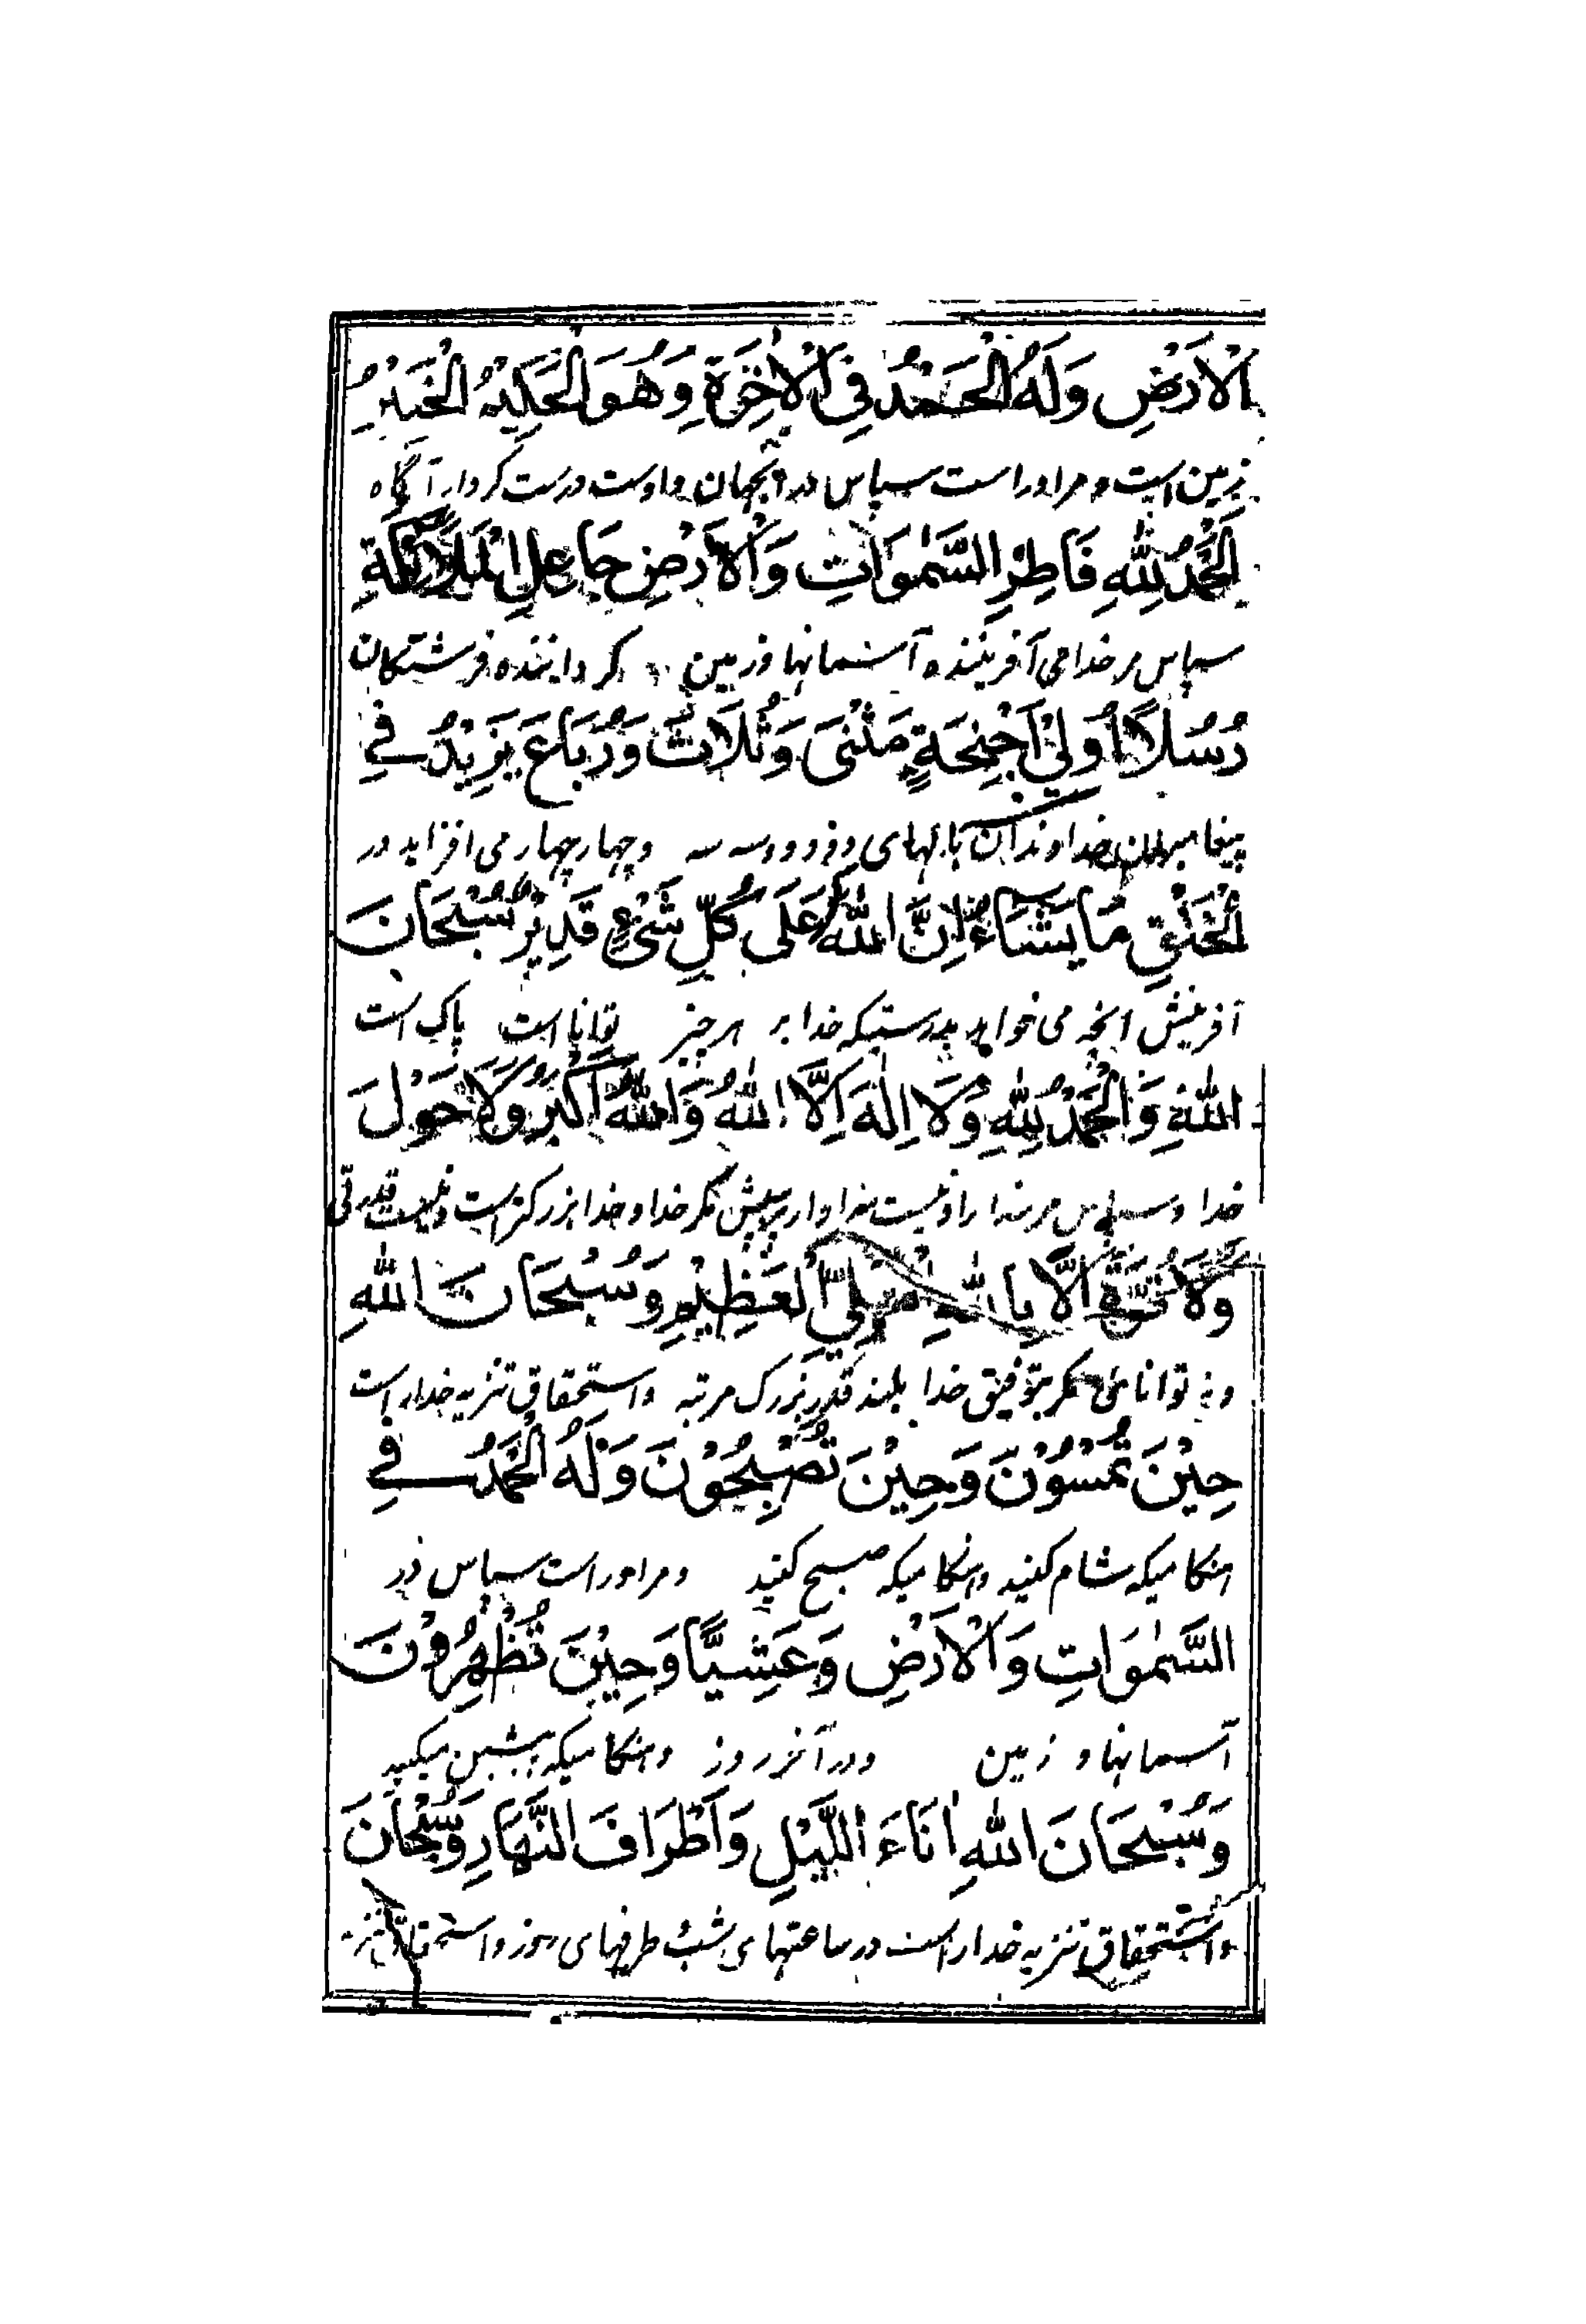 اَلْاَرْضِ وَلَهُ الْحَمْدُ فِي الْاٰخِرَةِ وَهُوَ الْحَكِيْمُ الْخَبِيْرُ
زمین است و مر اوراست سپاس در آنجهان و اوست درست کردار آگاه
اَلْحَمْدُ لِلّٰهِ فَاطِرِ السَّمٰوَاتِ وَالْاَرْضِ جَاعِلِ الْمَلَآئِكَةِ
سپاس مر خدای آفریننده آسمانها و زمین گرداننده فرشتکان
رُسُلًا اُولِيْ اَجْنِحَةٍ مَثْنٰى وَثُلَاثَ وَرُبَاعَ يَزِيْدُ فِي
پیغامبران خداوندان بالهای دو دو و سه سه و چهار چهار می افزاید در
الْخَلْقِ مَا يَشَاءُ اِنَّ اللّٰهَ عَلٰى كُلِّ شَيْءٍ قَدِيْرٌ سُبْحَانَ
آفرینش آنچه می خواهد بدرستیکه خدا بر هر چیز توانا است پاک است
اللّٰهِ وَالْحَمْدُ لِلّٰهِ وَلَا اِلٰهَ اِلَّا اللّٰهُ وَاللّٰهُ اَكْبَرُ وَلَا حَوْلَ
خدا و سپاس مر خدا را و نیست سزاوار پرستش مگر خدا و خدا بزرگتر است و نیست قدرتی
وَلَا قُوَّةَ اِلَّا بِاللّٰهِ الْعَلِيِّ الْعَظِيْمِ وَسُبْحَانَ اللّٰهِ
و نه توانائی مگر بتوفیق خدا بلند قدر بزرگ مرتبه و استحقاق تنزیه خدا راست
حِيْنَ تُمْسُوْنَ وَحِيْنَ تُصْبِحُوْنَ وَلَهُ الْحَمْدُ فِي
هنگامیکه شام کنید و هنگامیکه صبح کنید و مر اوراست سپاس در
السَّمٰوَاتِ وَالْاَرْضِ وَعَشِيًّا وَحِيْنَ تُظْهِرُوْنَ
آسمانها و زمین و در آخر روز و هنگامیکه پیشین میکنید
وَسُبْحَانَ اللّٰهِ اٰنَاءَ اللَّيْلِ وَاَطْرَافَ النَّهَارِ وَسُبْحَانَ
و استحقاق تنزیه خدا راست در ساعتهای شب و طرفهای روز و استحقاق تنزیه